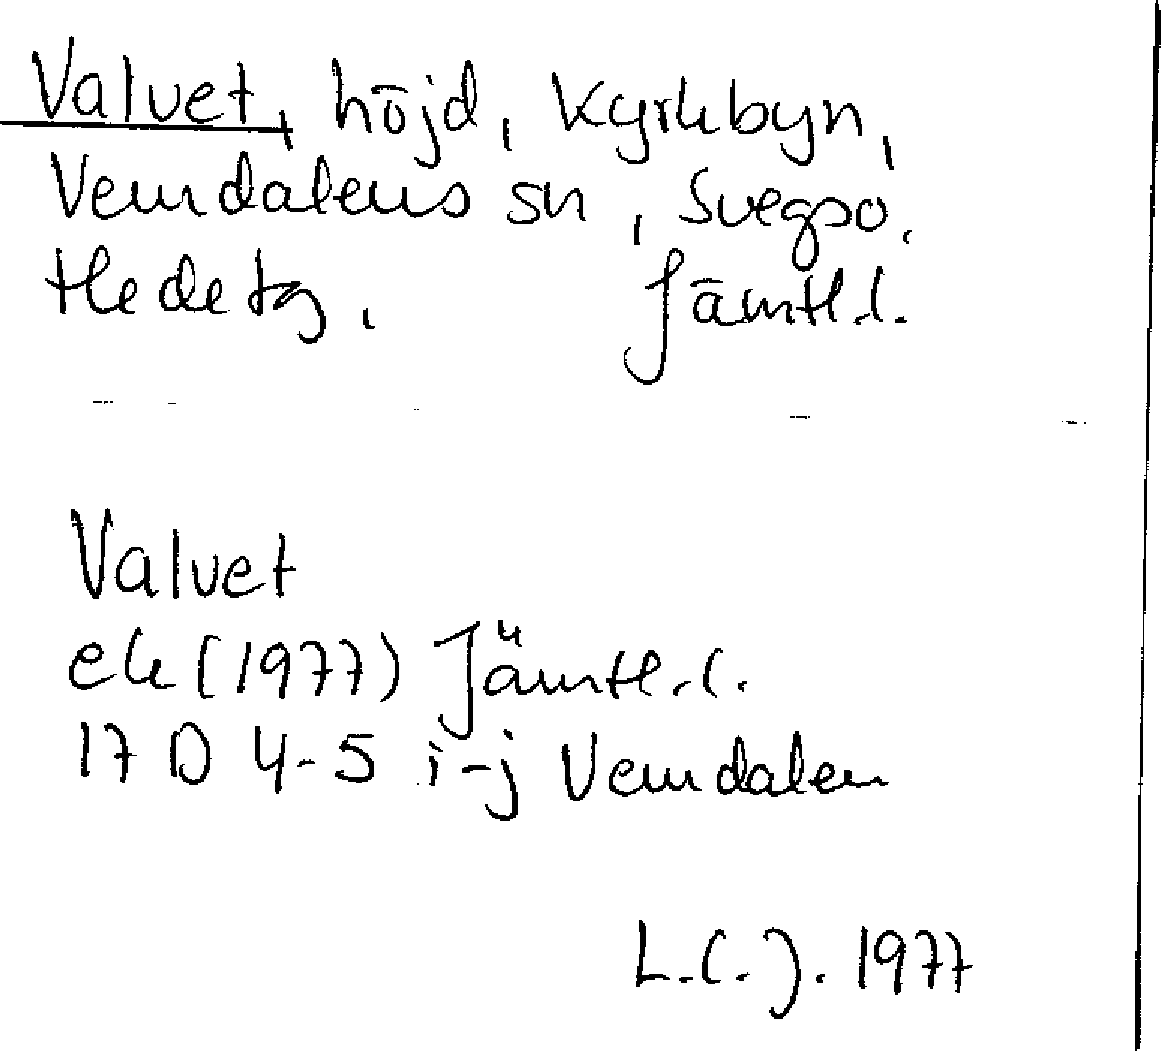 Valvet, höjd, Kyrkbyn,
Vemdalens sn, Svegso.
Hede tg, Jämtl.l.
Valvet
ek (1977) Jämtl.l.
17 D 4-5 i-j Vemdalen
L.C.J. 1977